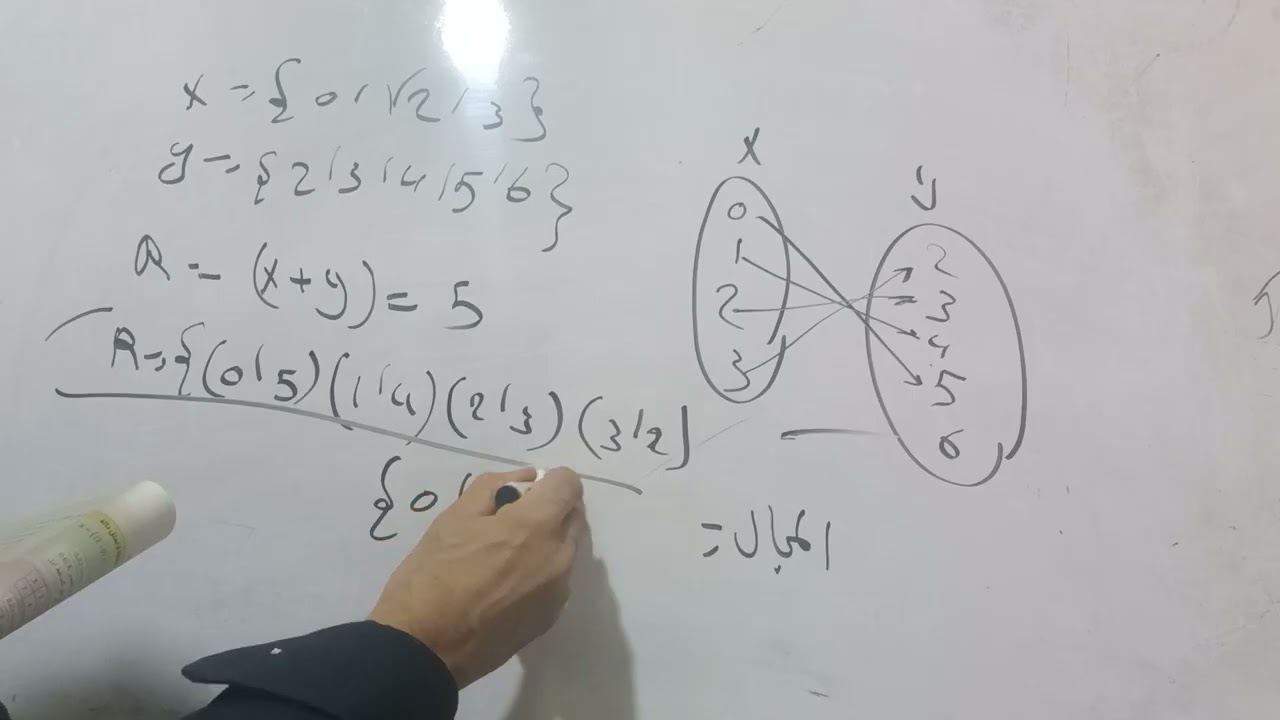 x = {0, 1, 2, 3}
y = {2, 3, 4, 5, 6}
R = (x+y) = 5
R = {(0,5)(1,4)(2,3)(3,2}
المجال =
{0,
x
0
1
2
3
y
2
3
4
5
6